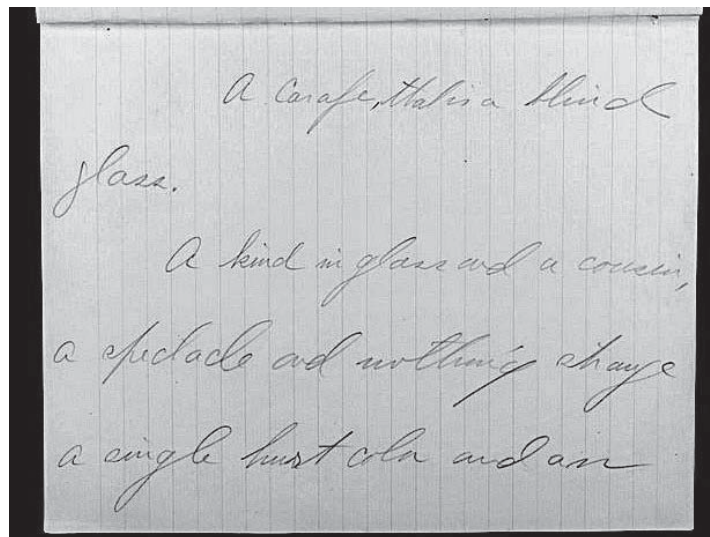 A Carafe, that is a blind
glass.
A kind in glass and a cousin,
a spectacle and nothing strange
a single hurt color and an